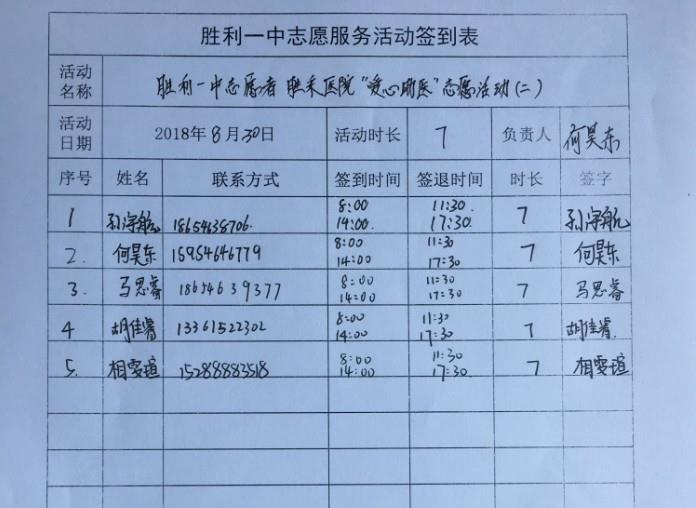 胜利一中志愿服务活动签到表
活动名称 胜利一中志愿者 胜采医院“爱心助医”志愿活动(二)
活动日期 2018年8月30日 活动时长 7 负责人 何昊东
序号 姓名 联系方式 签到时间 签退时间 时长 签字
1 孙浡航 18654638706. 8:00 14:00 11:30 17:30 7 孙浡航
2. 何昊东 15954646779 8:00 14:00 11:30 17:30 7 何昊东
3. 马思睿 18654639377 8:00 14:00 11:30 17:30 7 马思睿
4 胡佳睿 13361522302 8:00 14:00 11:30 17:30 7 胡佳睿
5. 相雯瑄 15288883518 8:00 14:00 11:30 17:30 7 相雯瑄